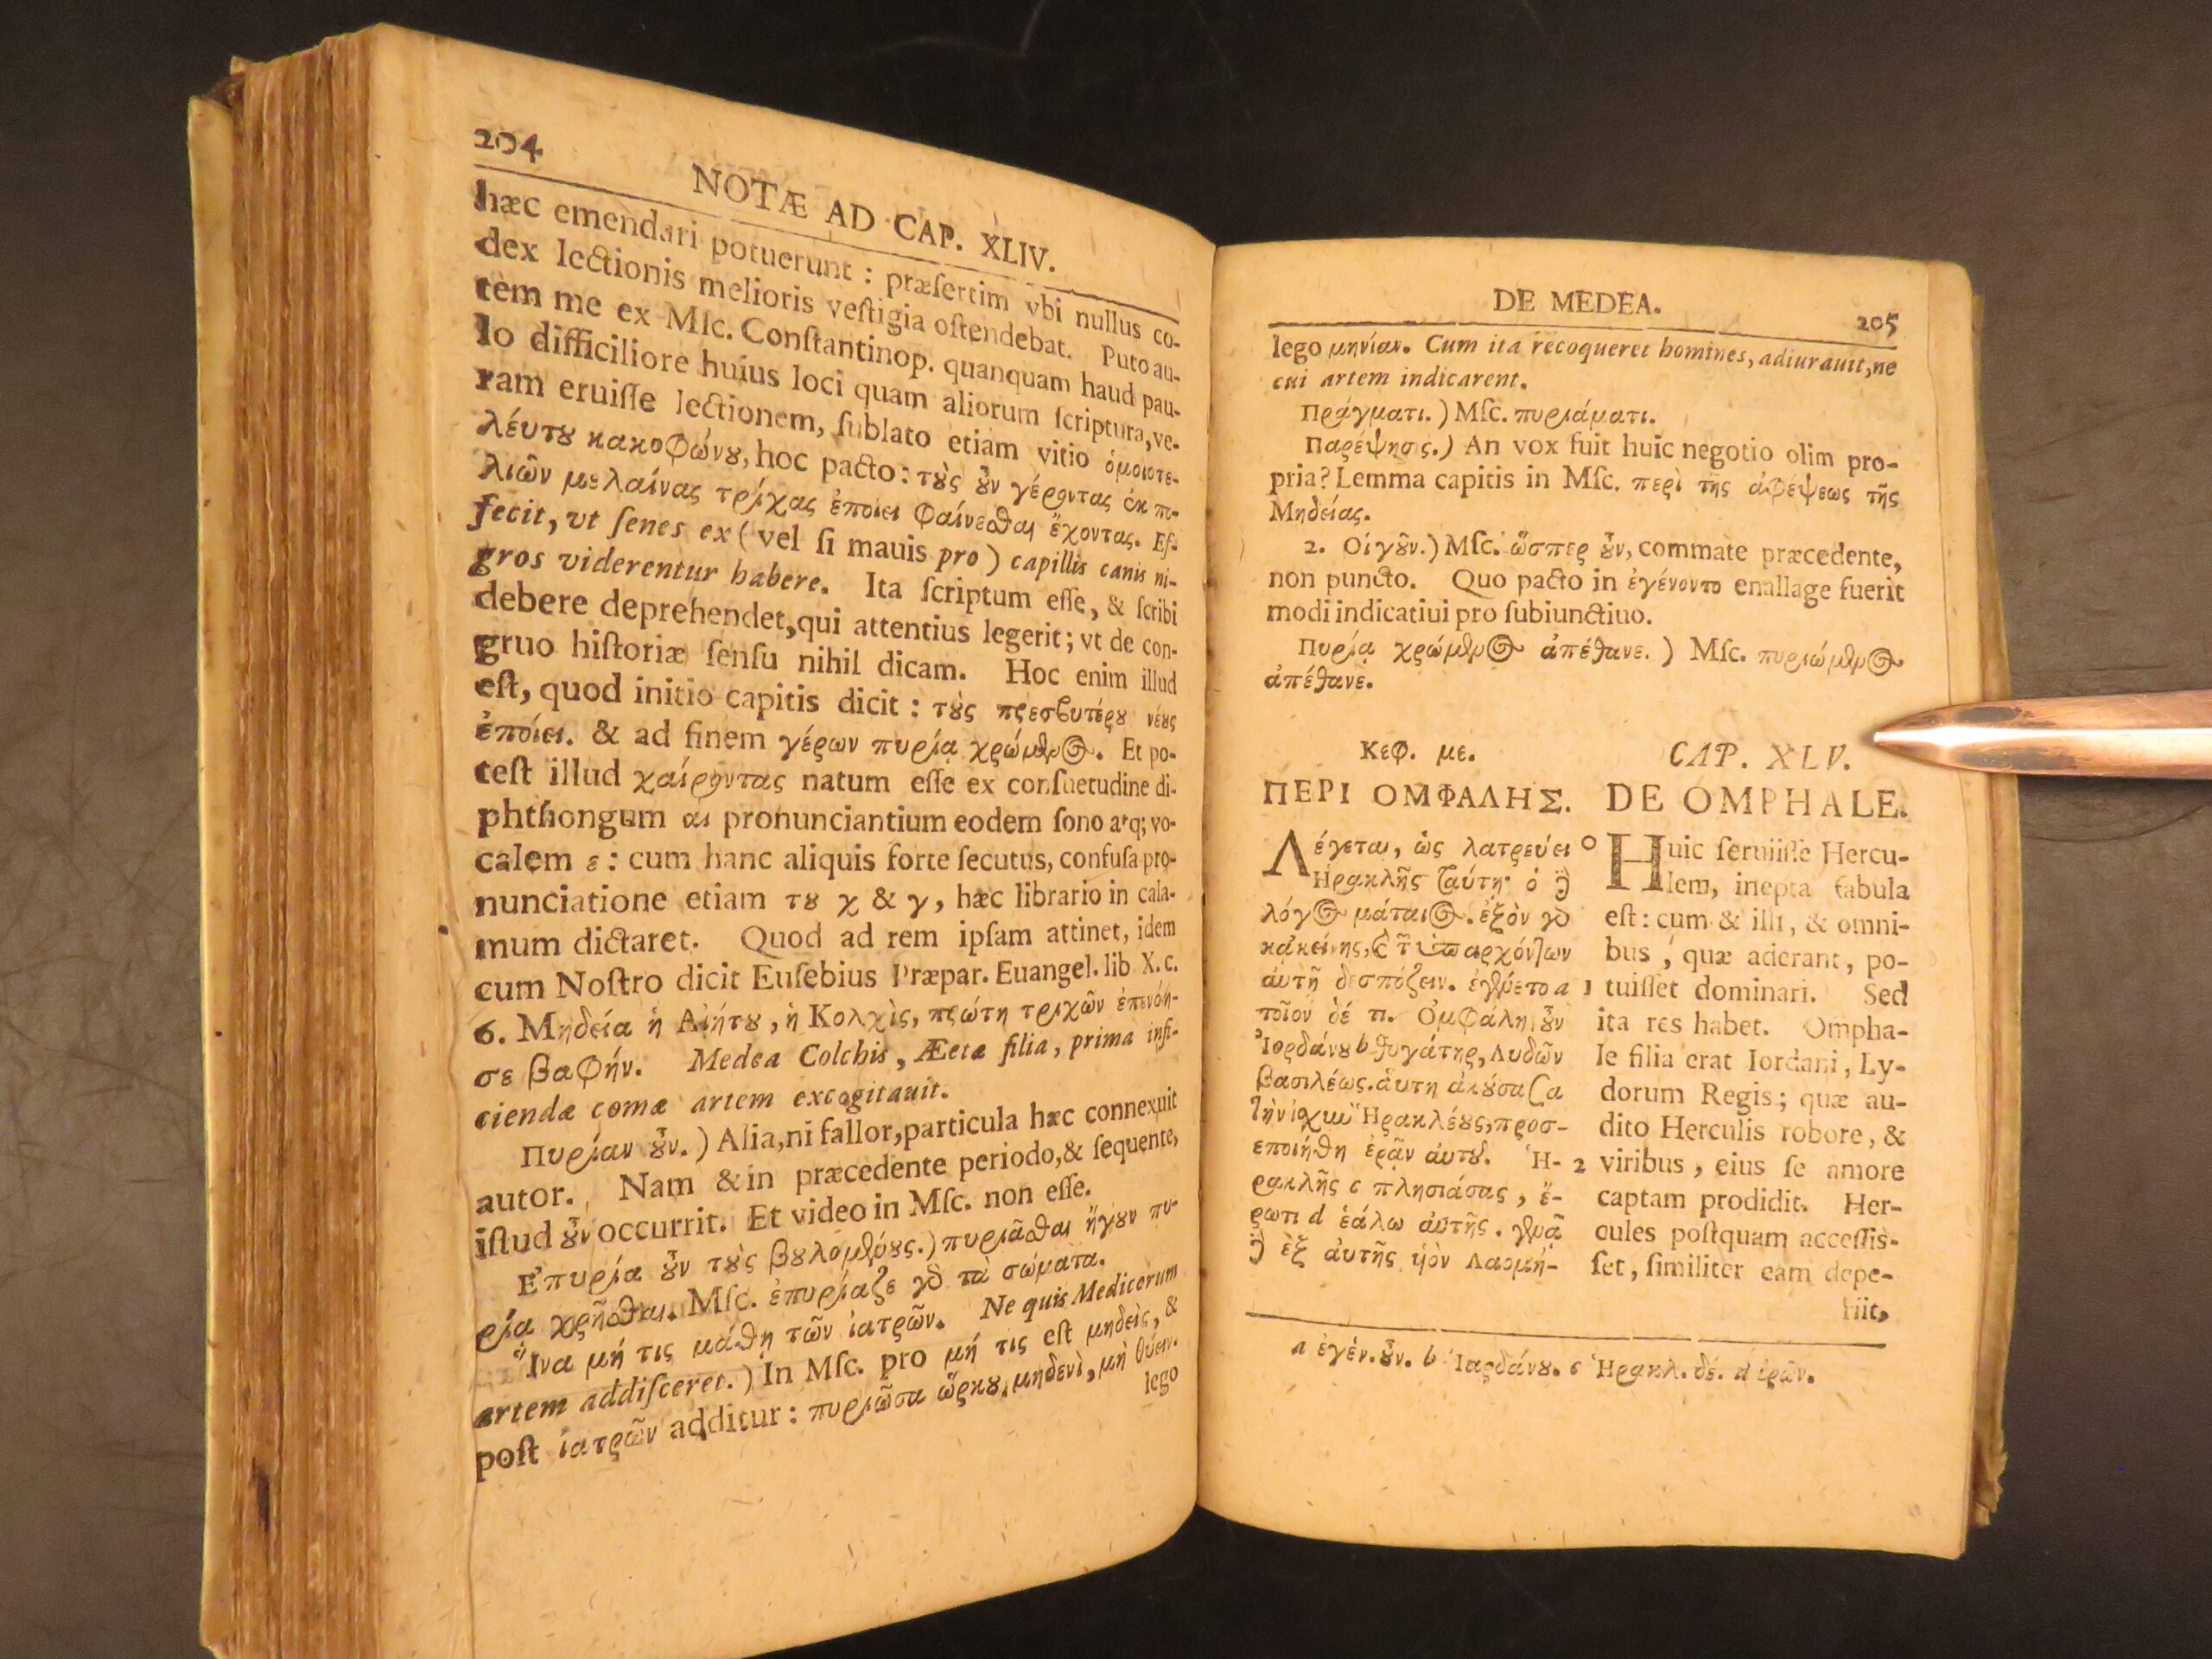 204
NOTÆ AD CAP. XLIV.
hæc emendari potuerunt : præſertim vbi nullus co-
dex lectionis melioris veſtigia oſtendebat. Puto au-
tèm me ex Mſc. Conſtantinop. quanquam haud pau-
lo difficiliore huius loci quam aliorum ſcriptura, ve-
ram eruiſſe lectionem, ſublato etiam vitio ὁμοιοτε-
λέυτȣ κακοφώνȣ, hoc pacto : τȣ̀ς ȣ̓͂ν γέροντας ἐκ πο-
λιῶν μελαίνας τρίχας ἐποίει φαίνεσθαι ἔχοντας. Ef-
fecit, vt ſenes ex ( vel ſi mauis pro ) capillis canis ni-
gros viderentur habere. Ita ſcriptum eſſe, & ſcribi
debere deprehendet, qui attentius legerit ; vt de con-
gruo hiſtoriæ ſenſu nihil dicam. Hoc enim illud
eſt, quod initio capitis dicit : τȣ̀ς πρεσβυτέρȣ νέȣς
ἐποίει. & ad finem γέρων πυρίᾳ χρώμενος. Et po-
teſt illud χαίροντας natum eſſe ex conſuetudine di-
phthongum αι pronunciantium eodem ſono atq; vo-
calem ε : cum hanc aliquis forte ſecutus, confuſa pro-
nunciatione etiam τȣ χ & γ, hæc librario in cala-
mum dictaret. Quod ad rem ipſam attinet, idem
cum Noſtro dicit Euſebius Præpar. Euangel. lib X. c.
6. Μηδεία ἡ Αἰήτȣ, ἡ Κολχὶς, πρώτη τριχῶν ἐπενόη-
σε βαφήν. Medea Colchis, Æetæ filia, prima infi-
ciendæ comæ artem excogitauit.
Πυρίαν ȣ̓͂ν. ) Alia, ni fallor, particula hæc connexuit
autor. Nam & in præcedente periodo, & ſequente,
iſtud ȣ̓͂ν occurrit. Et video in Mſc. non eſſe.
Ἐπυρία ȣ̓͂ν τȣ̀ς βȣλομένȣς. ) πυριᾶσθαι ἤγȣν πυ-
ρίᾳ χρῆσθαι. Mſc. ἐπυρίαζε γὸ τὰ σώματα.
Ἵνα μή τις μάθῃ τῶν ἰατρῶν. Ne quis Medicorum
artem addiſceret. ) In Mſc. pro μή τις eſt μηδεὶς, &
poſt ἰατρῶν additur : πυριῶσα ὥρκȣ, μηδενὶ, μὴ θύειν.
lego
DE MEDEA.
205
lego μηνίαν. Cum ita recoqueret homines, adiurauit, ne
cui artem indicarent.
Πράγματι. ) Mſc. πυριάματι.
Παρέψησις. ) An vox fuit huic negotio olim pro-
pria ? Lemma capitis in Mſc. περὶ τῆς ἀφέψεως τῆς
Μηδείας.
2. Οἱ γȣ͂ν. ) Mſc. ὥσπερ ȣ̓͂ν, commate præcedente,
non puncto. Quo pacto in ἐγένοντο enallage fuerit
modi indicatiui pro ſubiunctiuo.
Πυρίᾳ χρώμενος ἀπέθανε. ) Mſc. πυριώμενος
ἀπέθανε.
Κεφ. με.
ΠΕΡΙ ΟΜΦΑΛΗΣ.
Λέγεται, ὡς λατρεύει
Ἡρακλῆς ταύτῃ· ὁ δὲ
λόγος μάταιος. ἐξὸν γὸ
κἀκείνης, & τ͂ ὑπαρχόντων
ἀυτῇ δεσπόζειν. ἐγένετο a
τοῖον δέ τι. Ὀμφάλη ȣ̓͂ν
Ἰορδάνȣ b θυγάτηρ, Λυδῶν
βασιλέως. ἀυτη ἀκȣ́σασα
τὴν ἰσχὺν Ἡρακλέȣς, προσ-
εποιήθη ἐρᾶν ἀυτȣ͂. Ἡ- 2
ρακλῆς c πλησιάσας, ἔ-
ρωτι d ἑάλω ἀυτῆς. γεννᾷ
δὲ ἐξ ἀυτῆς ὑιὸν Λαομή-
CAP. XLV.
DE OMPHALE.
Huic ſeruiiſſe Hercu-
lem, inepta fabula
eſt : cum & illi, & omni-
bus, quæ aderant, po-
1 tuiſſet dominari. Sed
ita res habet. Ompha-
le filia erat Iordani, Ly-
dorum Regis ; quæ au-
dito Herculis robore, &
viribus, eius ſe amore
captam prodidit. Her-
cules poſtquam acceſſis-
ſet, ſimiliter eam depe-
riit,
a ἐγέν. ȣ̓͂ν. b Ἰαρδάνȣ. c Ἡρακλ. δέ. d ἐρῶν.